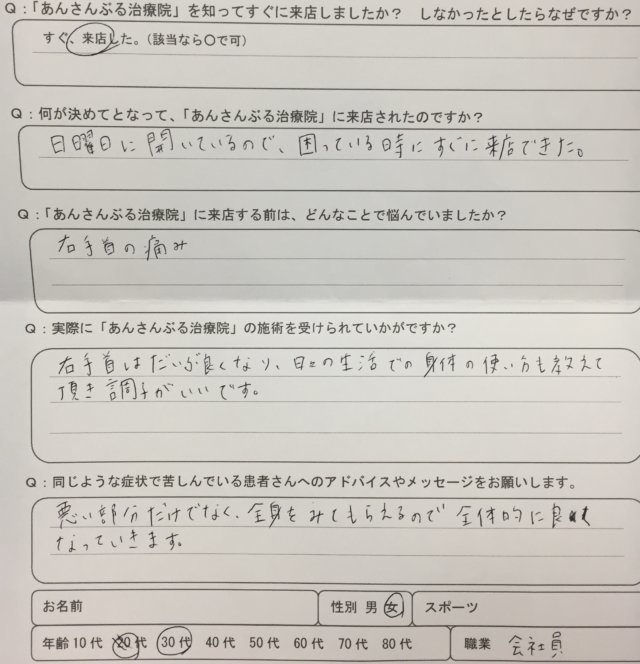 Q:「あんさんぶる治療院」を知ってすぐに来店しましたか？ しなかったとしたらなぜですか？
すぐ、来店した。(該当なら〇で可)
Q:何が決めてとなって、「あんさんぶる治療院」に来店されたのですか？
日曜日に開いているので、困っている時にすぐに来店できた。
Q:「あんさんぶる治療院」に来店する前は、どんなことで悩んでいましたか？
右手首の痛み
Q:実際に「あんさんぶる治療院」の施術を受けられていかがですか？
右手首はだいぶ良くなり、日々の生活での身体の使い方も教えて
頂き調子がいいです。
Q:同じような症状で苦しんでいる患者さんへのアドバイスやメッセージをお願いします。
悪い部分だけでなく、全身をみてもらえるので全体的に良く
なっていきます。
お名前 性別 男 女 スポーツ
年齢 10代 20代 30代 40代 50代 60代 70代 80代 職業 会社員